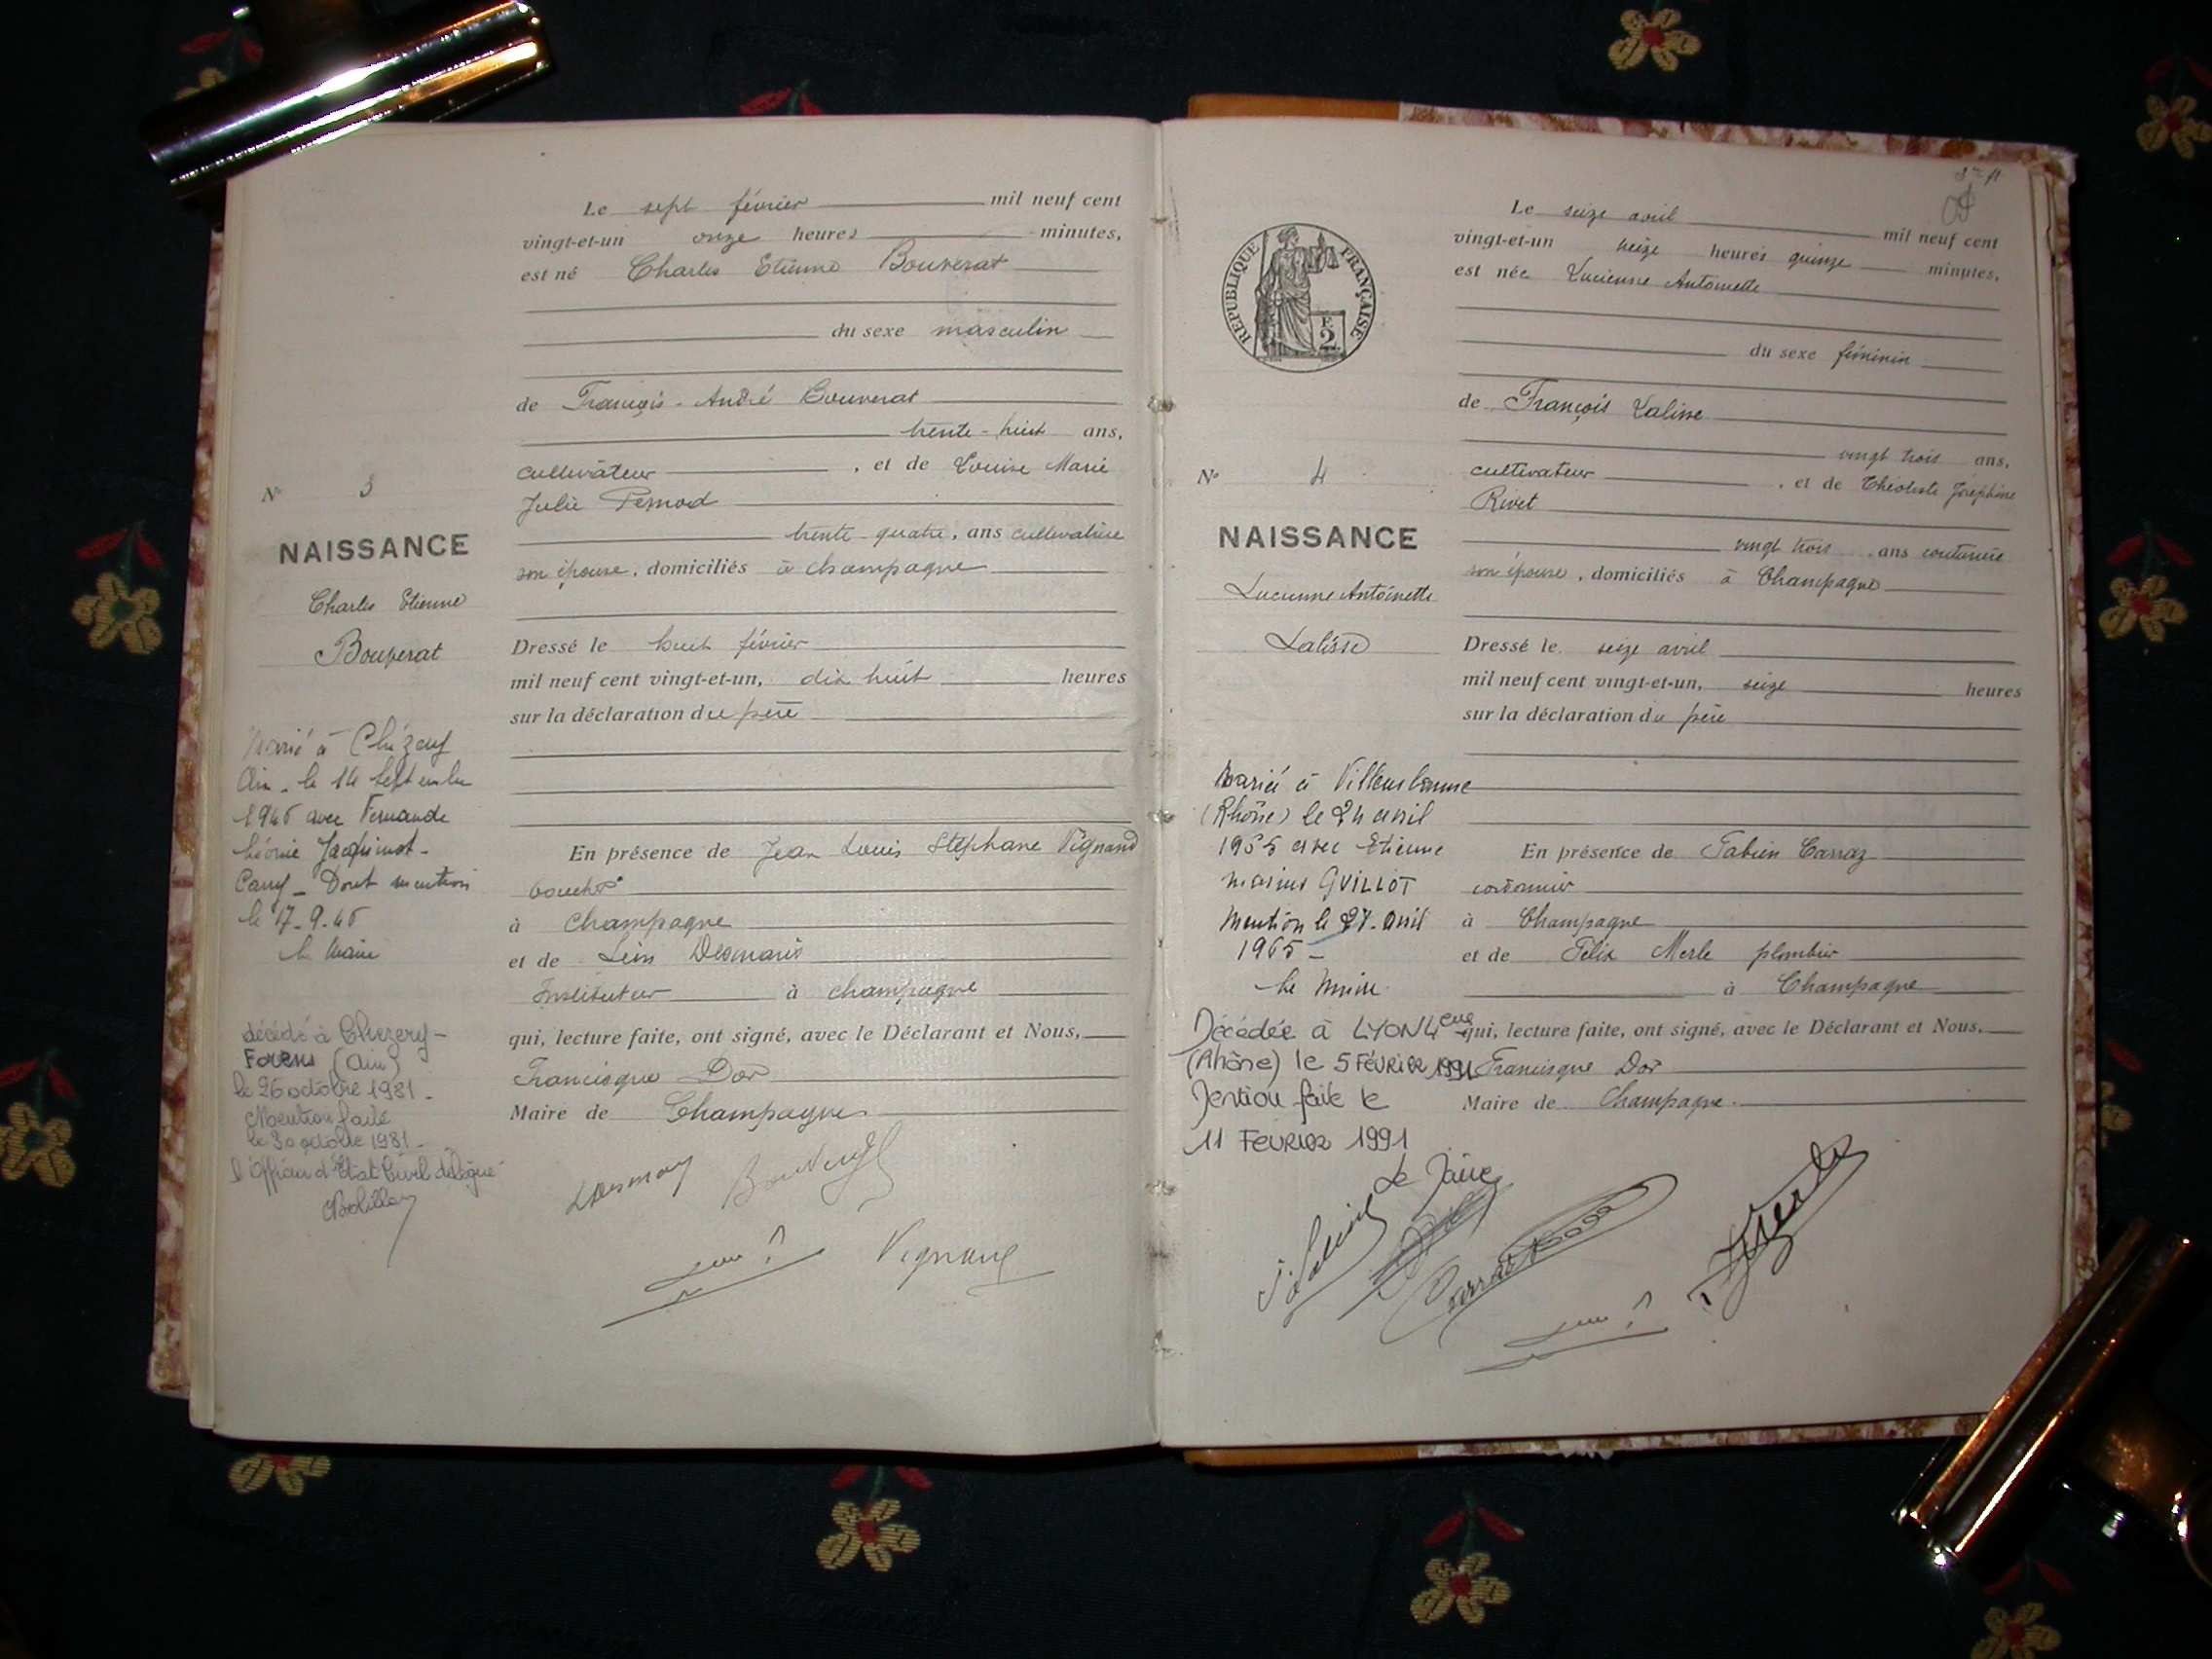 Le sept février mil neuf cent
vingt-et-un onze heures minutes,
est né Charles Etienne Bouverat
du sexe masculin
de François-André Bouverat
trente-huit ans,
cultivateur, et de Louise Marie
Julie Pernod
trente-quatre, ans cultivatrice
son épouse, domiciliés à Champagne
Dressé le huit février
mil neuf cent vingt-et-un, dix huit heures
sur la déclaration du père
En présence de Jean Louis Stéphane Vignand
à Champagne
et de Léon Desmaris
Instituteur à Champagne
qui, lecture faite, ont signé, avec le Déclarant et Nous,
Francisque Dor
Maire de Champagne
N° 3
NAISSANCE
Charles Etienne
Bouverat
Marié à Chézery
Ain. le 14 Septembre
1946 avec Fernande
Léonie Jacquinot-
Dont mention
le 17-9-46
le Maire
décédé à Chezery-
Forens (Ain)
le 26 octobre 1981.
Mention faite
le 30 octobre 1981.
l'Officier d'Etat Civil délégué
Le seize avril mil neuf cent
vingt-et-un heures quinze minutes,
est née Lucienne Antoinette
du sexe féminin
de François Lalisse
vingt trois ans,
cultivateur, et de Joséphine
Rivet
vingt trois ans couturière
son épouse, domiciliés à Champagne
Dressé le seize avril
mil neuf cent vingt-et-un, seize heures
sur la déclaration du père
En présence de Fabien Carraz
cordonnier
à Champagne
et de Félix Merle plombier
à Champagne
qui, lecture faite, ont signé, avec le Déclarant et Nous,
Francisque Dor
Maire de Champagne
RÉPUBLIQUE FRANÇAISE
F.
2
N° 4
NAISSANCE
Lucienne Antoinette
Lalisse
Mariée à Villeurbanne
(Rhône) le 24 avril
1965 avec Etienne
Marius GUILLOT
Mention le 27 avril
1965 -
Le Maire
Décédée à LYON 4eme
(Rhône) le 5 FÉVRIER 1991
Mention faite le
11 FEVRIER 1991
Le Maire